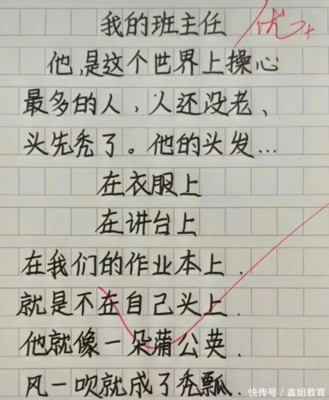 我的班主任 优++
他,是这个世界上操心
最多的人,人还没老、
头先秃了。他的头发...
在衣服上
在讲台上
在我们的作业本上.
就是不在自己头上.
他就像一朵蒲公英.
风一吹就成了秃瓢.
快传号/鑫姐教育